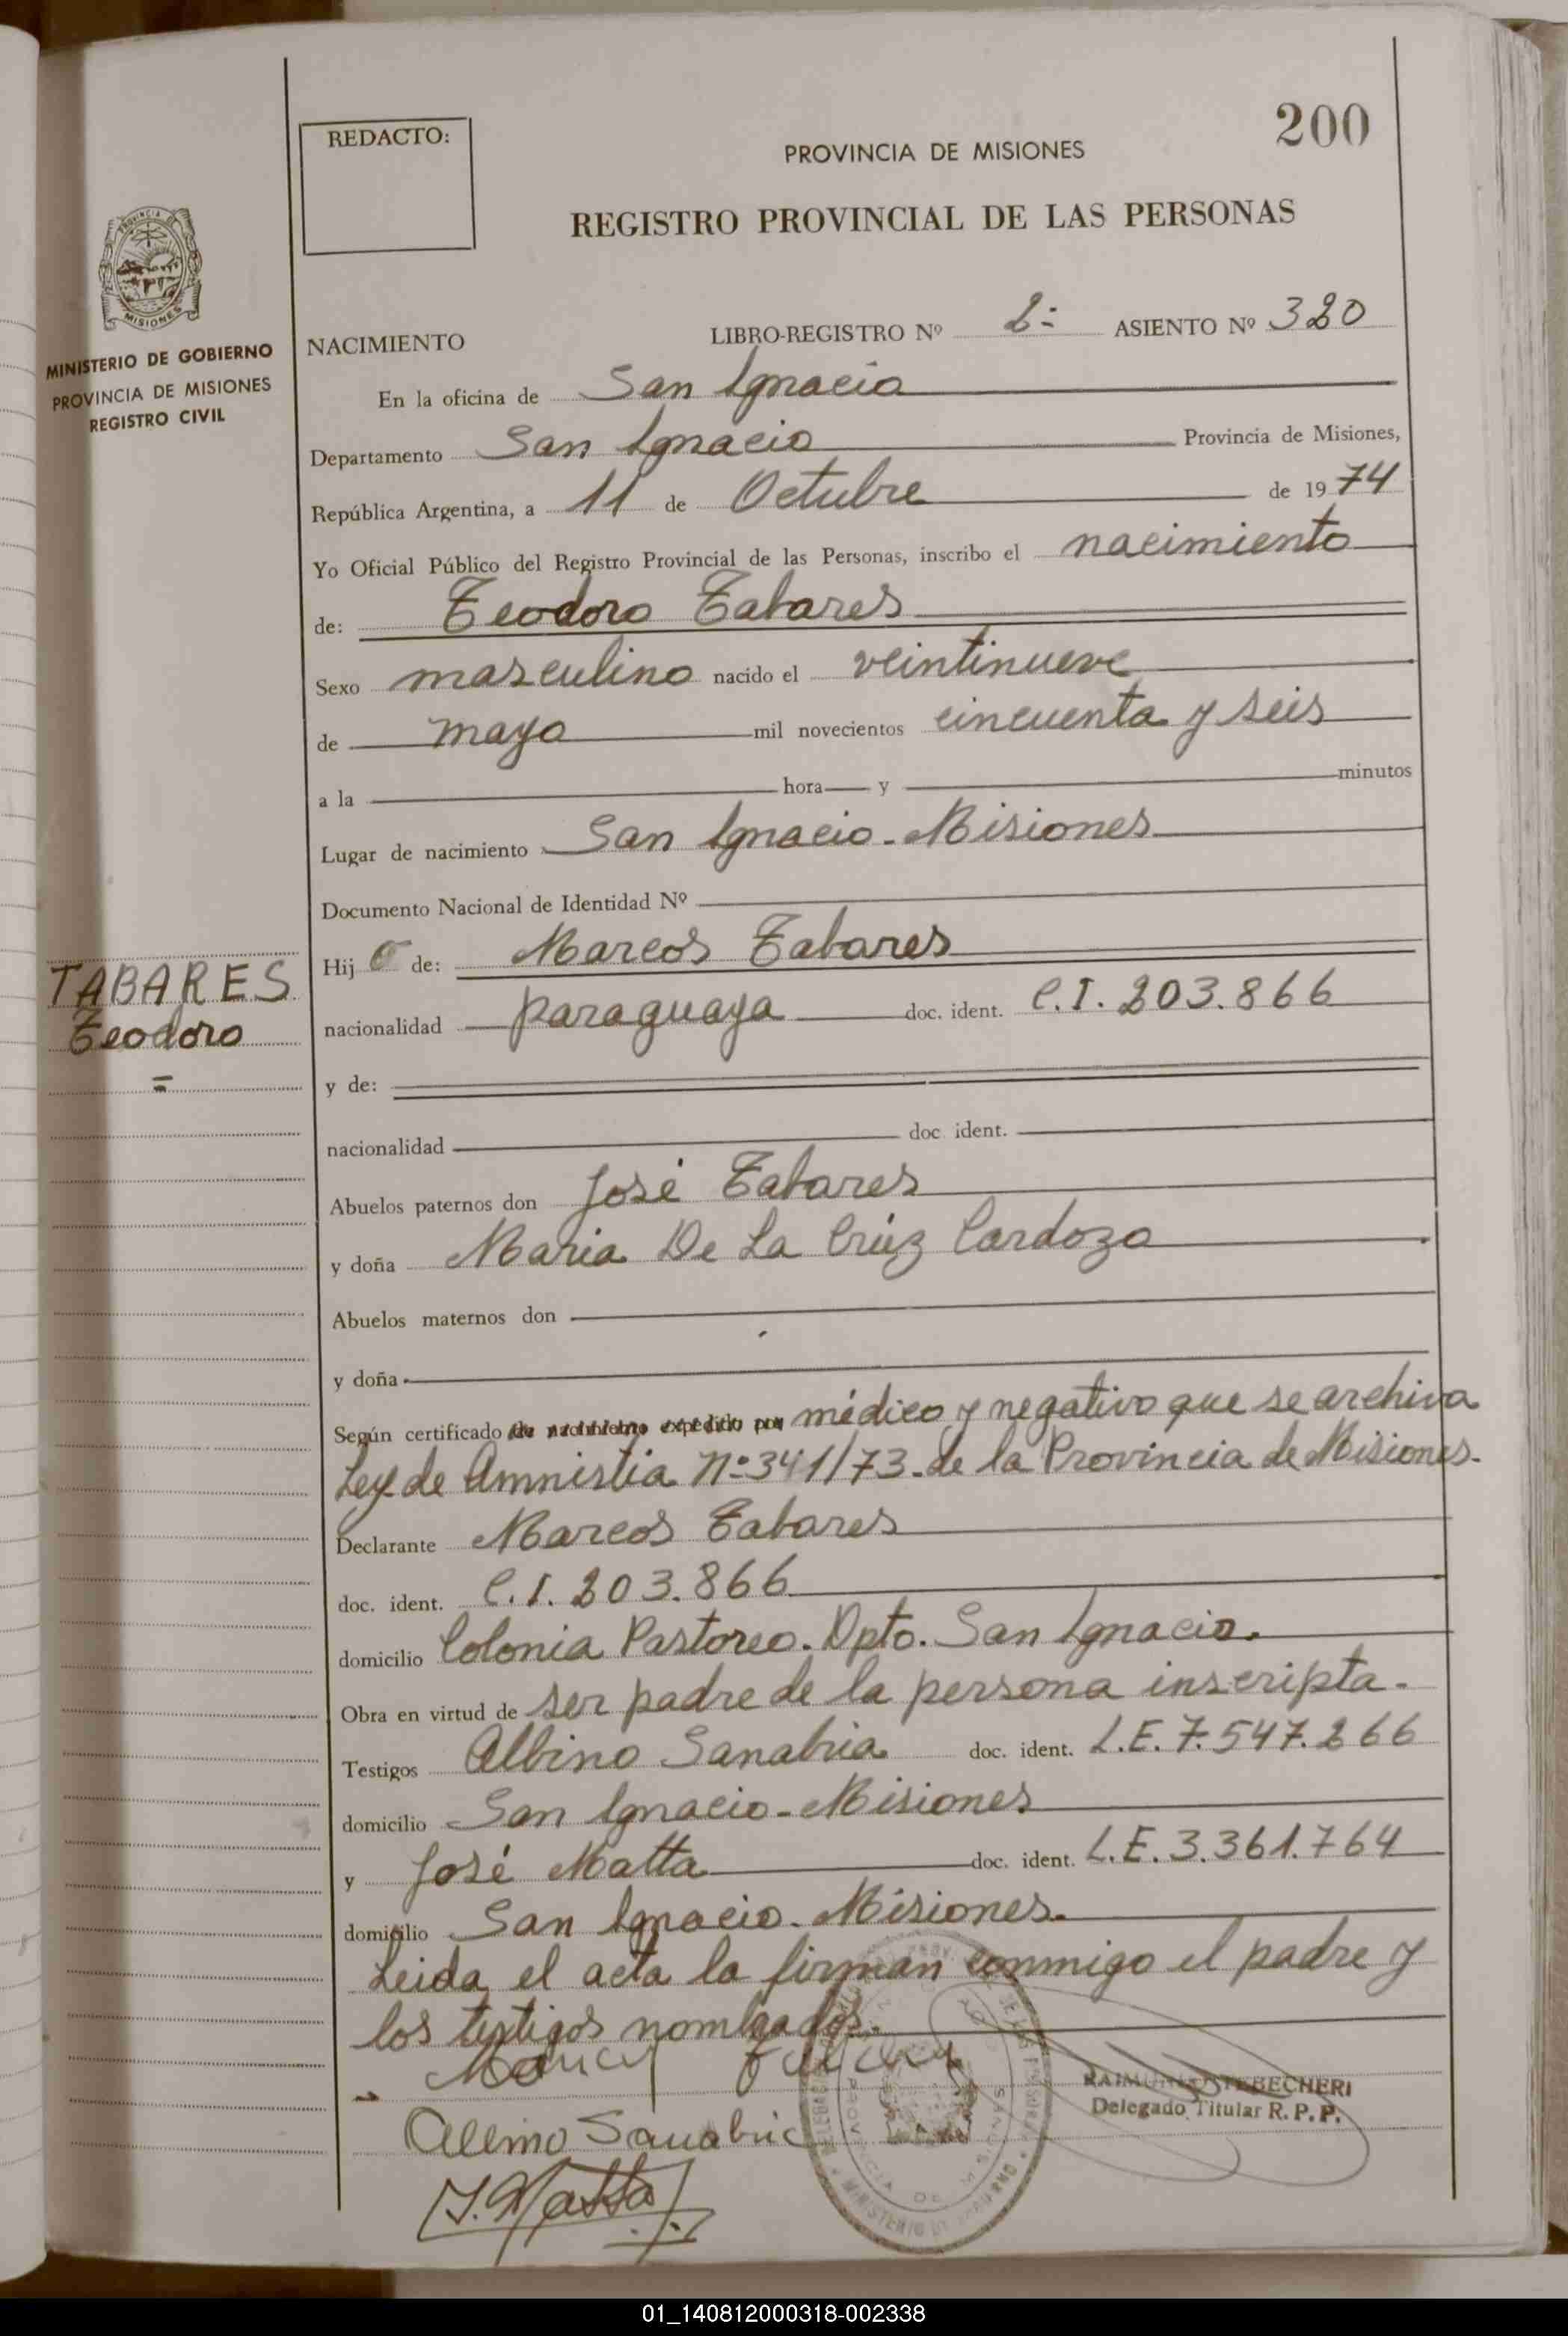 200
REDACTO:
PROVINCIA DE MISIONES
REGISTRO PROVINCIAL DE LAS PERSONAS
PROVINCIA DE
MISIONES
MINISTERIO DE GOBIERNO
PROVINCIA DE MISIONES
REGISTRO CIVIL
NACIMIENTO LIBRO-REGISTRO Nº 2= ASIENTO Nº 320
En la oficina de San Ignacio
Departamento San Ignacio Provincia de Misiones,
República Argentina, a 11 de Octubre de 1974
Yo Oficial Público del Registro Provincial de las Personas, inscribo el nacimiento
de: Teodoro Tabares
Sexo masculino nacido el veintinueve
de mayo mil novecientos cincuenta y seis
a la hora y minutos
Lugar de nacimiento San Ignacio - Misiones
Documento Nacional de Identidad Nº
Hijo de: Marcos Tabares
TABARES
Teodoro
=
nacionalidad paraguaya doc. ident. C.I. 203.866
y de:
nacionalidad doc ident.
Abuelos paternos don José Tabares
y doña Maria De La Crúz Cardozo
Abuelos maternos don
y doña
Según certificado de nacimiento expedido por médico y negativo que se archiva
Ley de Amnistia Nº 341/73. de la Provincia de Misiones.
Declarante Marcos Tabares
doc. ident. C.I. 203.866
domicilio Colonia Pastoreo. Dpto. San Ignacio.
Obra en virtud de ser padre de la persona inscripta.
Testigos Albino Sanabria doc. ident. L.E. 7.547.266
domicilio San Ignacio - Misiones
y José Matta doc. ident. L.E. 3.361.764
domicilio San Ignacio. Misiones.
Leida el acta la firman conmigo el padre y
los testigos nombrados.
Delegado Titular R. P. P.
Albino Sanabria
J. Matta
MINISTERIO DE GOBIERNO
01_140812000318-002338